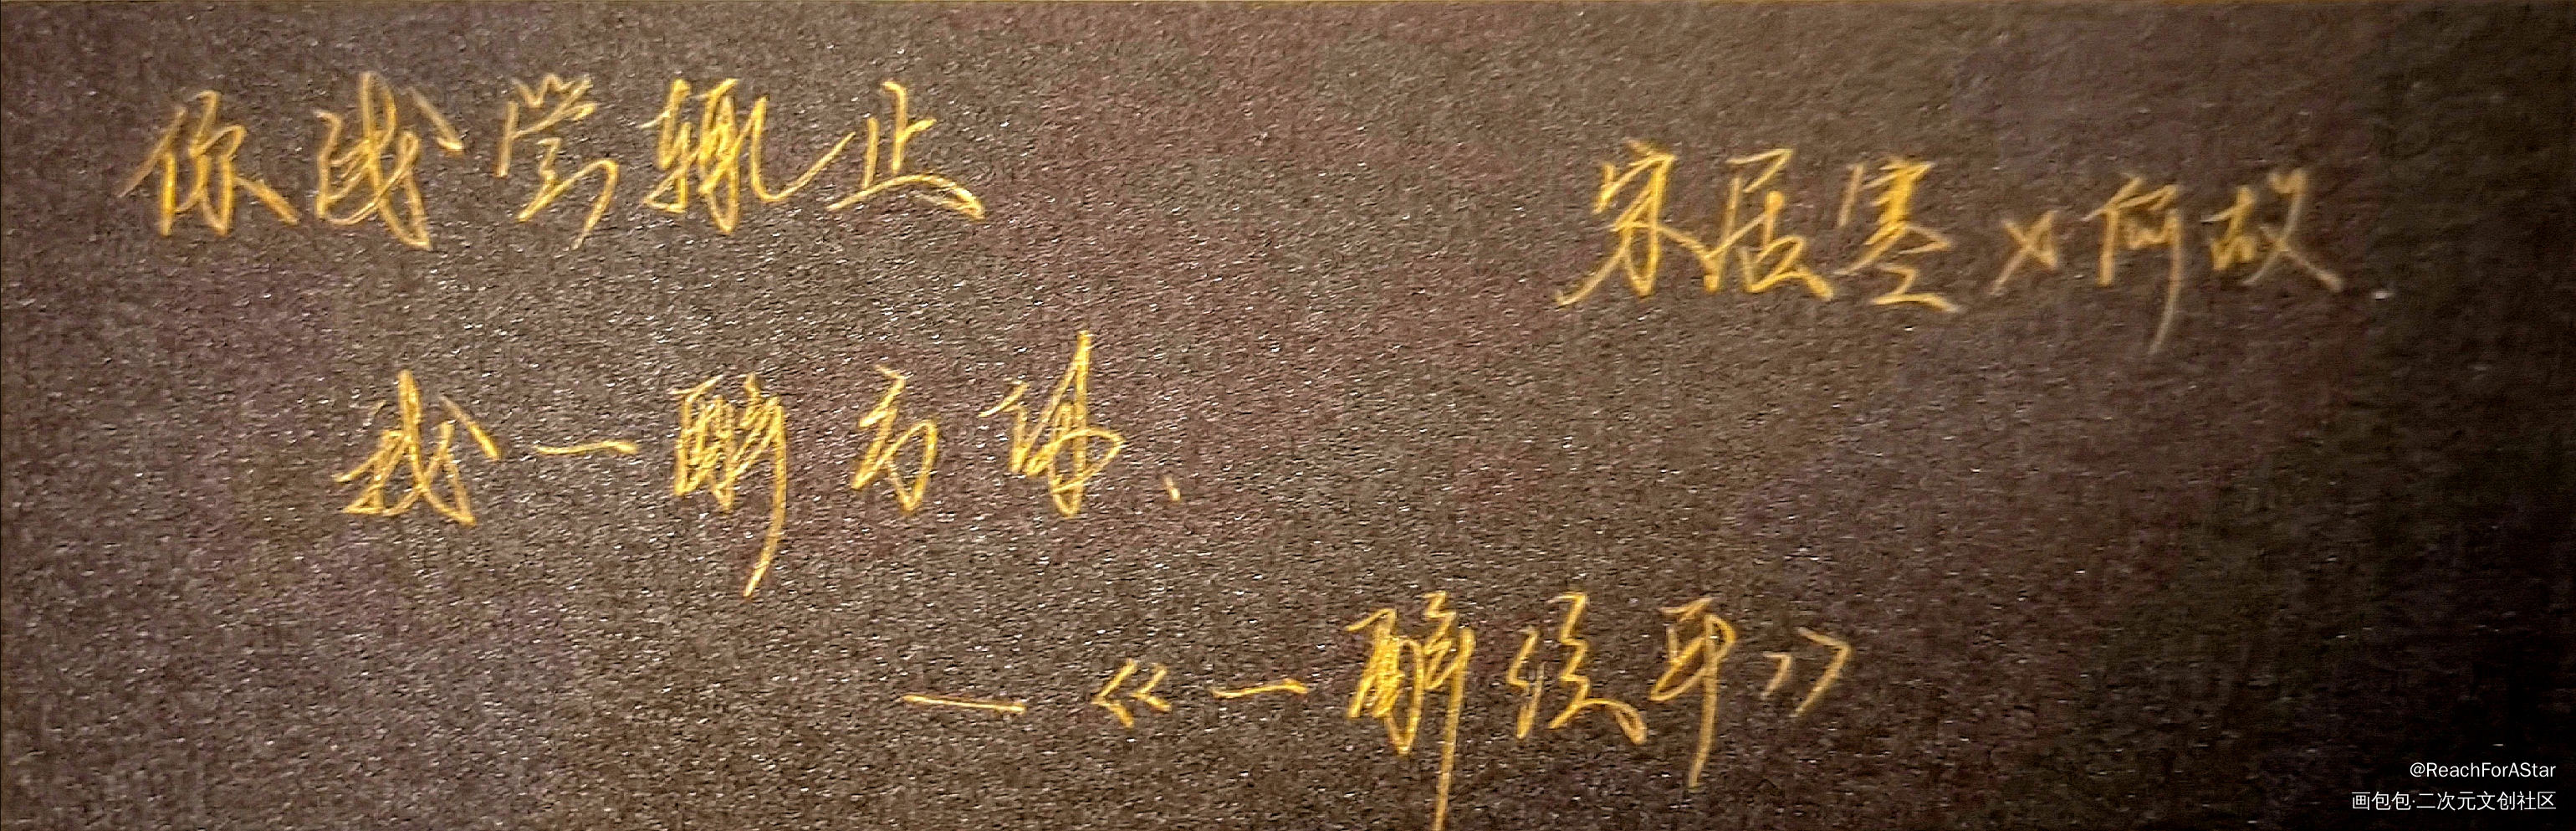 你浅尝辄止
宋居寒×何故
我一醉方休、
—《一醉经年》
@ReachForAStar
画包包·二次元文创社区